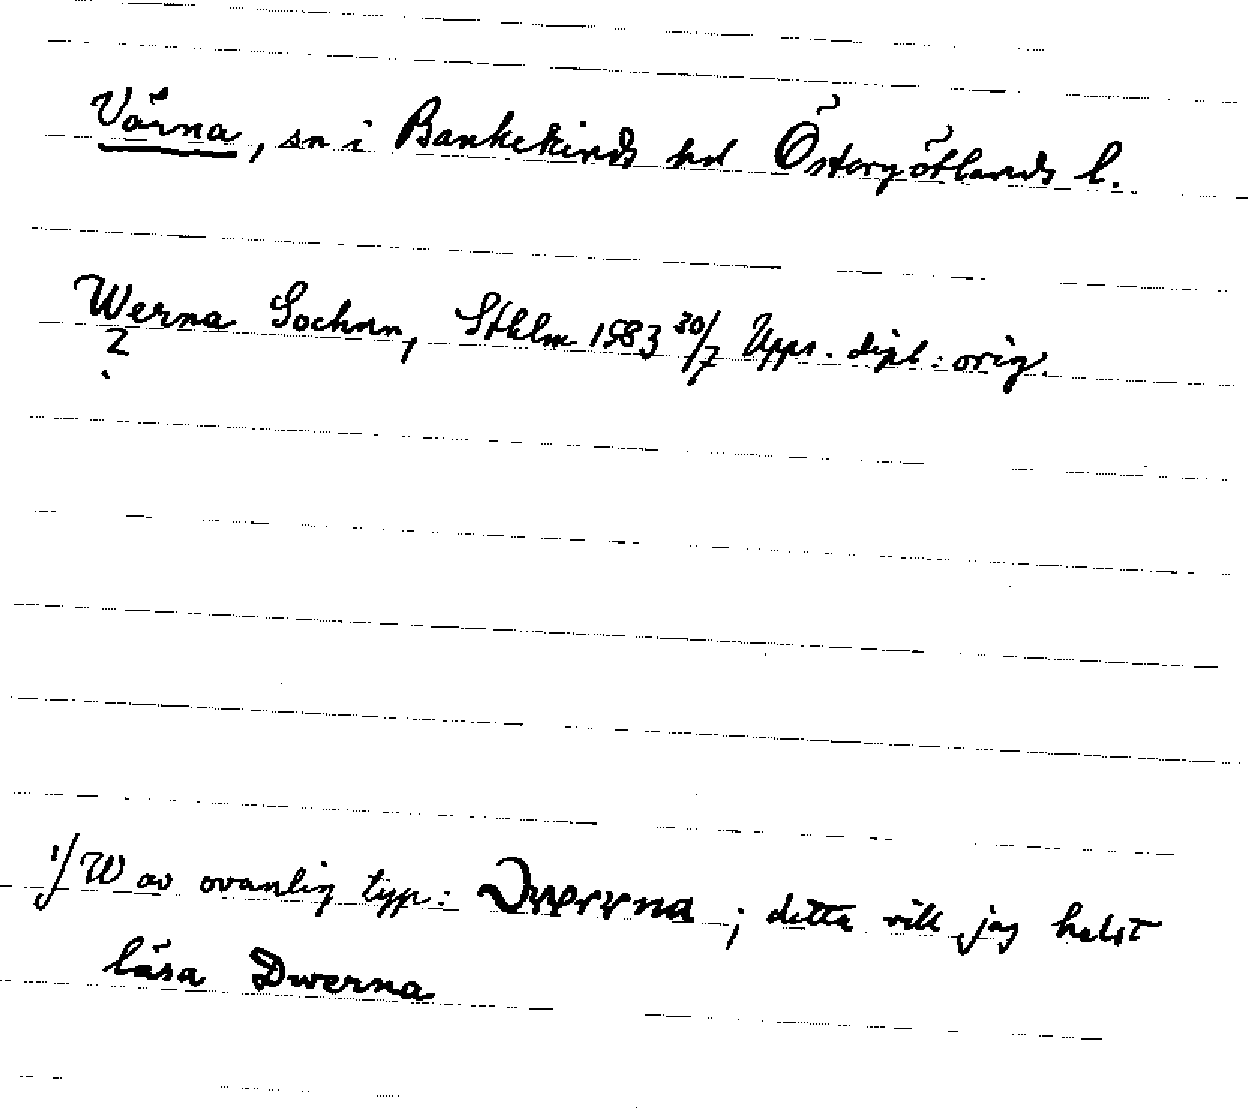 Värna, sn i Bankekinds hd Östergötlands l.
Werna Sochnn, Sthlm 1583 30/7 Upps. dipl: orig.
?
1/ W av ovanlig typ: Dwerna; detta vill jag helst
läsa Dwerna